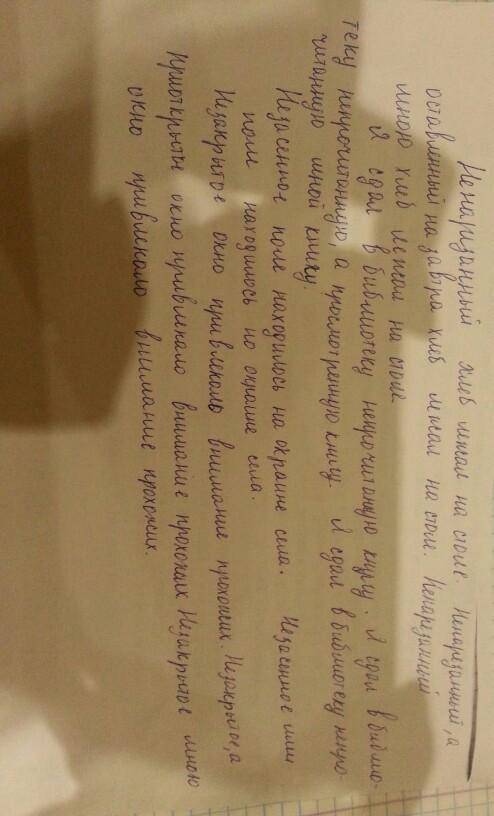 Ненаризанный хлеб лежал на столе. Ненарезанный, а
оставленный на завтра хлеб лежал на столе. Ненарезанный
мною хлеб лежал на столе
Я сдал в библиотеку непрочитаную книгу. Я сдал в библио-
теку непрочитанную, а просмотренную книгу. Я сдал в библиотеку непро-
читанную мной книгу.
Незасенное поле находилось на окраине села. Незасенное ими
поле находилось но окраине села.
Незакрытое окно привлекало внимание прохожих. Незакрытое, а
приоткрыты окно привлекало внимание прохожих Незакрытое мною
окно привлекало внимание прохожих.